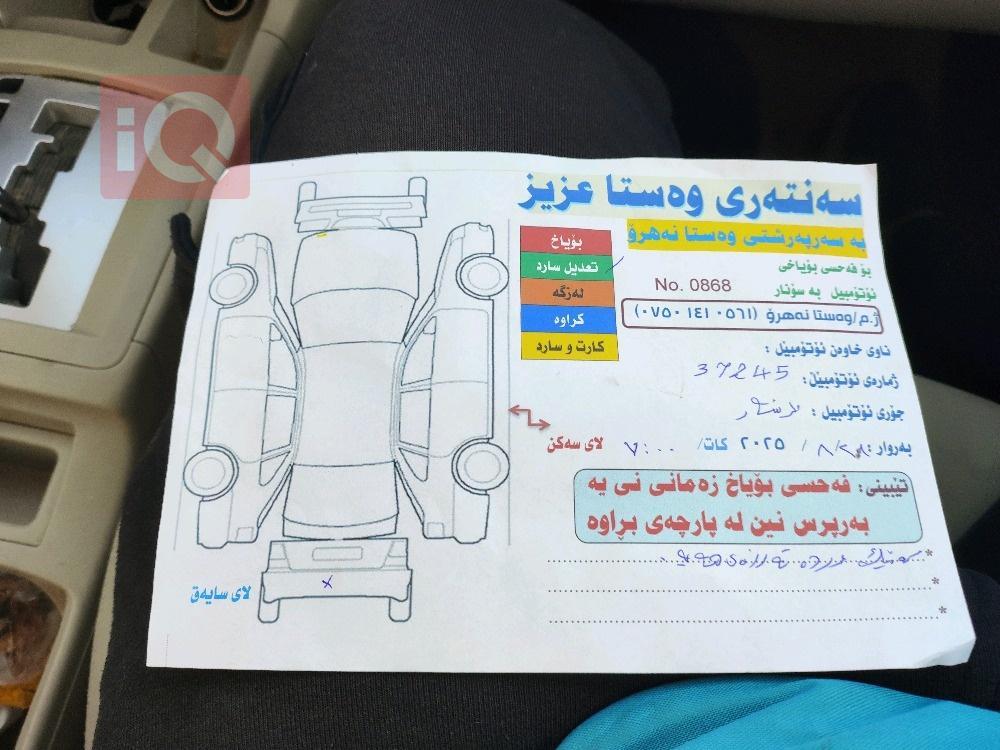 iQ
سەنتەری وەستا عزیز
بە سەرپەرشتی وەستا نەهرۆ
بۆیاخ
تعدیل سارد
لەزگە
کراوە
کارت و سارد
بۆ فەحسی بۆیاخی
ئۆتۆمبیل بە سۆنار
No. 0868
ژ.م/وەستا نەهرۆ (٠٧٥٠ ١٤١ ٠٥٦١)
ناوی خاوەن ئۆتۆمبێل :
ژمارەی ئۆتۆمبێل: 37245
جۆری ئۆتۆمبیل :
بەروار: ٨/٢٨ / ٢٠٢٥ کات/ ٧:٠٠
لای سەکن
تێبینی: فەحسی بۆیاخ زەمانی نی یە
بەرپرس نین لە پارچەی براوە
لای سایەق
x
*
*
*